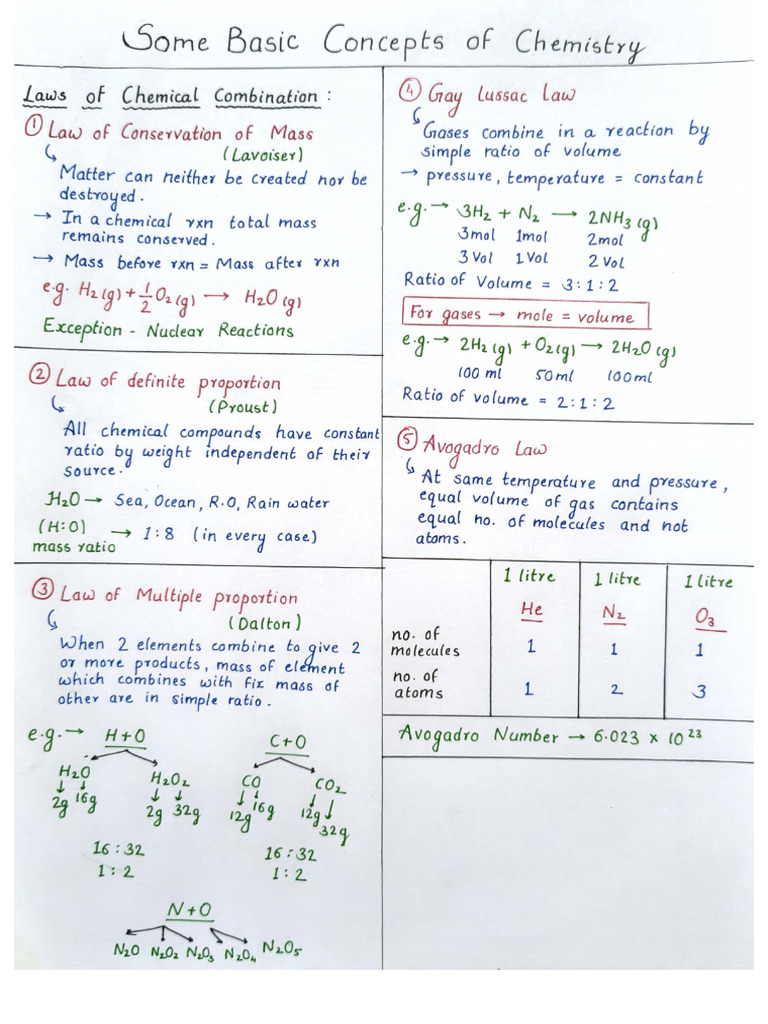 Some Basic Concepts of Chemistry
Laws of Chemical Combination :
① Law of Conservation of Mass
(Lavoiser)
Matter can neither be created nor be
destroyed.
→ In a chemical rxn total mass
remains conserved.
→ Mass before rxn = Mass after rxn
e.g. H₂(g) + 1/2 O₂(g) → H₂O(g)
Exception - Nuclear Reactions
② Law of definite proportion
(Proust)
All chemical compounds have constant
ratio by weight independent of their
source.
H₂O → Sea, Ocean, R.O, Rain water
(H:O) → 1:8 (in every case)
mass ratio
③ Law of Multiple proportion
(Dalton)
When 2 elements combine to give 2
or more products, mass of element
which combines with fix mass of
other are in simple ratio.
e.g. → H+O C+O
H₂O H₂O₂ CO CO₂
2g 16g 2g 32g 12g 16g 12g 32g
16:32 16:32
1:2 1:2
N+O
N₂O N₂O₂ N₂O₃ N₂O₄ N₂O₅
④ Gay Lussac Law
Gases combine in a reaction by
simple ratio of volume
→ pressure, temperature = constant
e.g. → 3H₂ + N₂ → 2NH₃(g)
3mol 1mol 2mol
3 Vol 1 Vol 2 Vol
Ratio of Volume = 3:1:2
For gases → mole = volume
e.g. → 2H₂(g) + O₂(g) → 2H₂O(g)
100 ml 50ml 100ml
Ratio of volume = 2:1:2
⑤ Avogadro Law
At same temperature and pressure,
equal volume of gas contains
equal no. of molecules and not
atoms.
1 litre 1 litre 1 litre
He N₂ O₃
no. of
molecules 1 1 1
no. of
atoms 1 2 3
Avogadro Number → 6.023 × 10²³